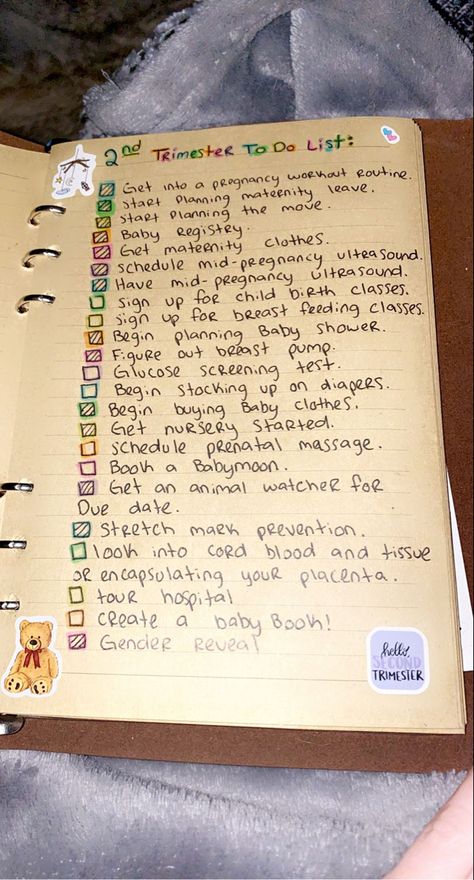 2nd Trimester To Do List:
Get into a pregnancy workout routine.
Start planning maternity leave.
Start planning the move.
Baby Registry.
Get maternity clothes.
Schedule mid-pregnancy ultrasound.
Have mid-pregnancy ultrasound.
Sign up for child birth classes.
Sign up for breast feeding classes.
Begin planning Baby shower.
Figure out breast pump.
Glucose screening test.
Begin stocking up on diapers.
Begin buying Baby clothes.
Get nursery started.
Schedule prenatal massage.
Book a Babymoon.
Get an animal watcher for
Due date.
Stretch mark prevention.
look into cord blood and tissue
or encapsulating your placenta.
tour hospital
create a baby Book!
Gender Reveal
hello,
SECOND
TRIMESTER